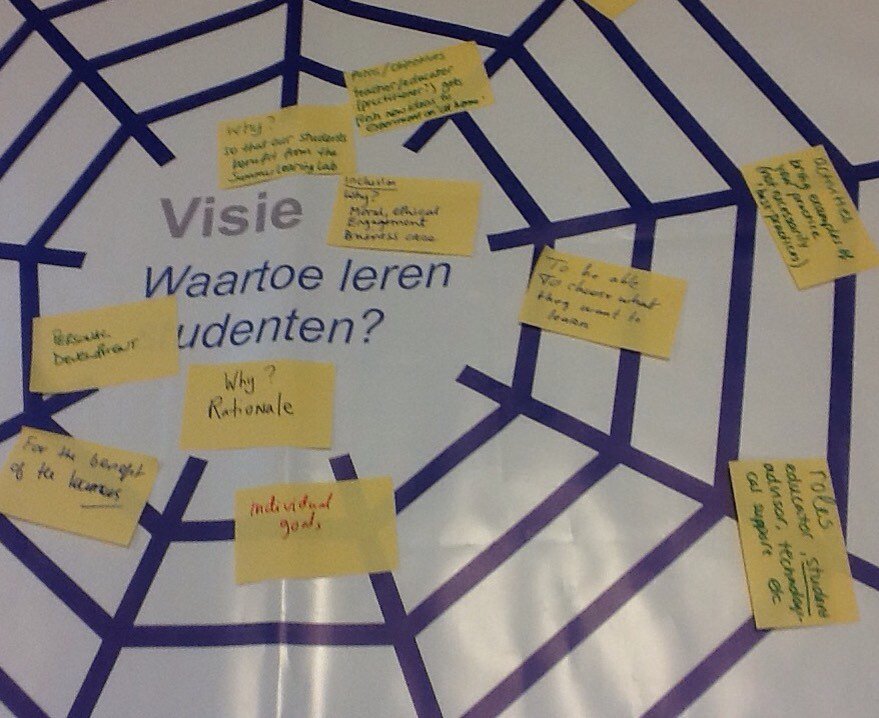 Aims/objectives
teacher/educator
(practitioner?) gets
fresh new ideas to
experiment on at home.
Why?
so that our students
benefit from the
Summer learning Lab
Inclusion
Why?
Moral, ethical
Engagement
Business case
Visie
Waartoe leren
udenten?
activities
bring examples of
your practice
(not necessarily
'best practices')
To be able
To choose what
they want to
learn
Personal
Development
Why?
Rationale
For the benefit
of the learners
individual
goals
roles
educator, student
advisor, technologi-
cal support etc